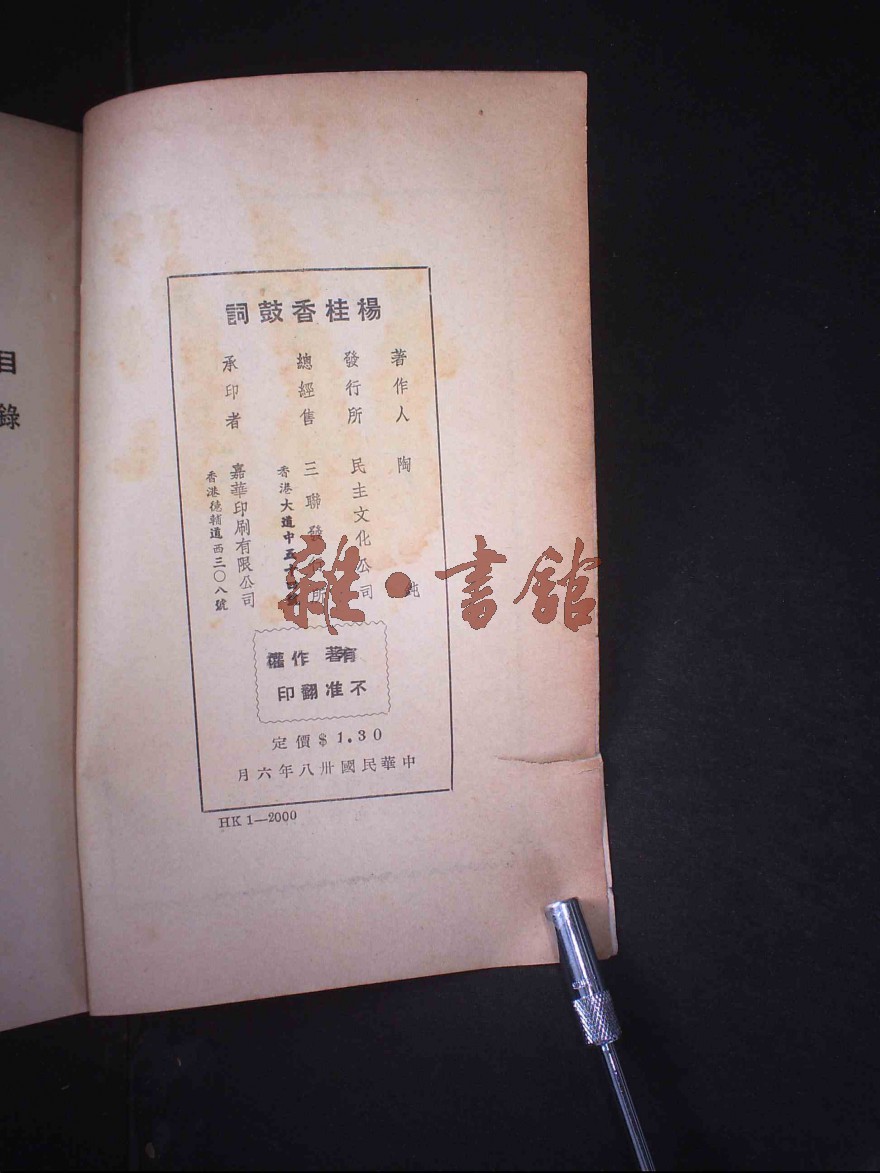 楊桂香鼓詞
著作人 陶 純
發行所 民主文化公司
總經售 三聯發行所
香港大道中五十四號
承印者 嘉華印刷有限公司
香港德輔道西三〇八號
有著作權
不准翻印
定價 $1.30
中華民國卅八年六月
HK 1—2000
目錄
雜·書館